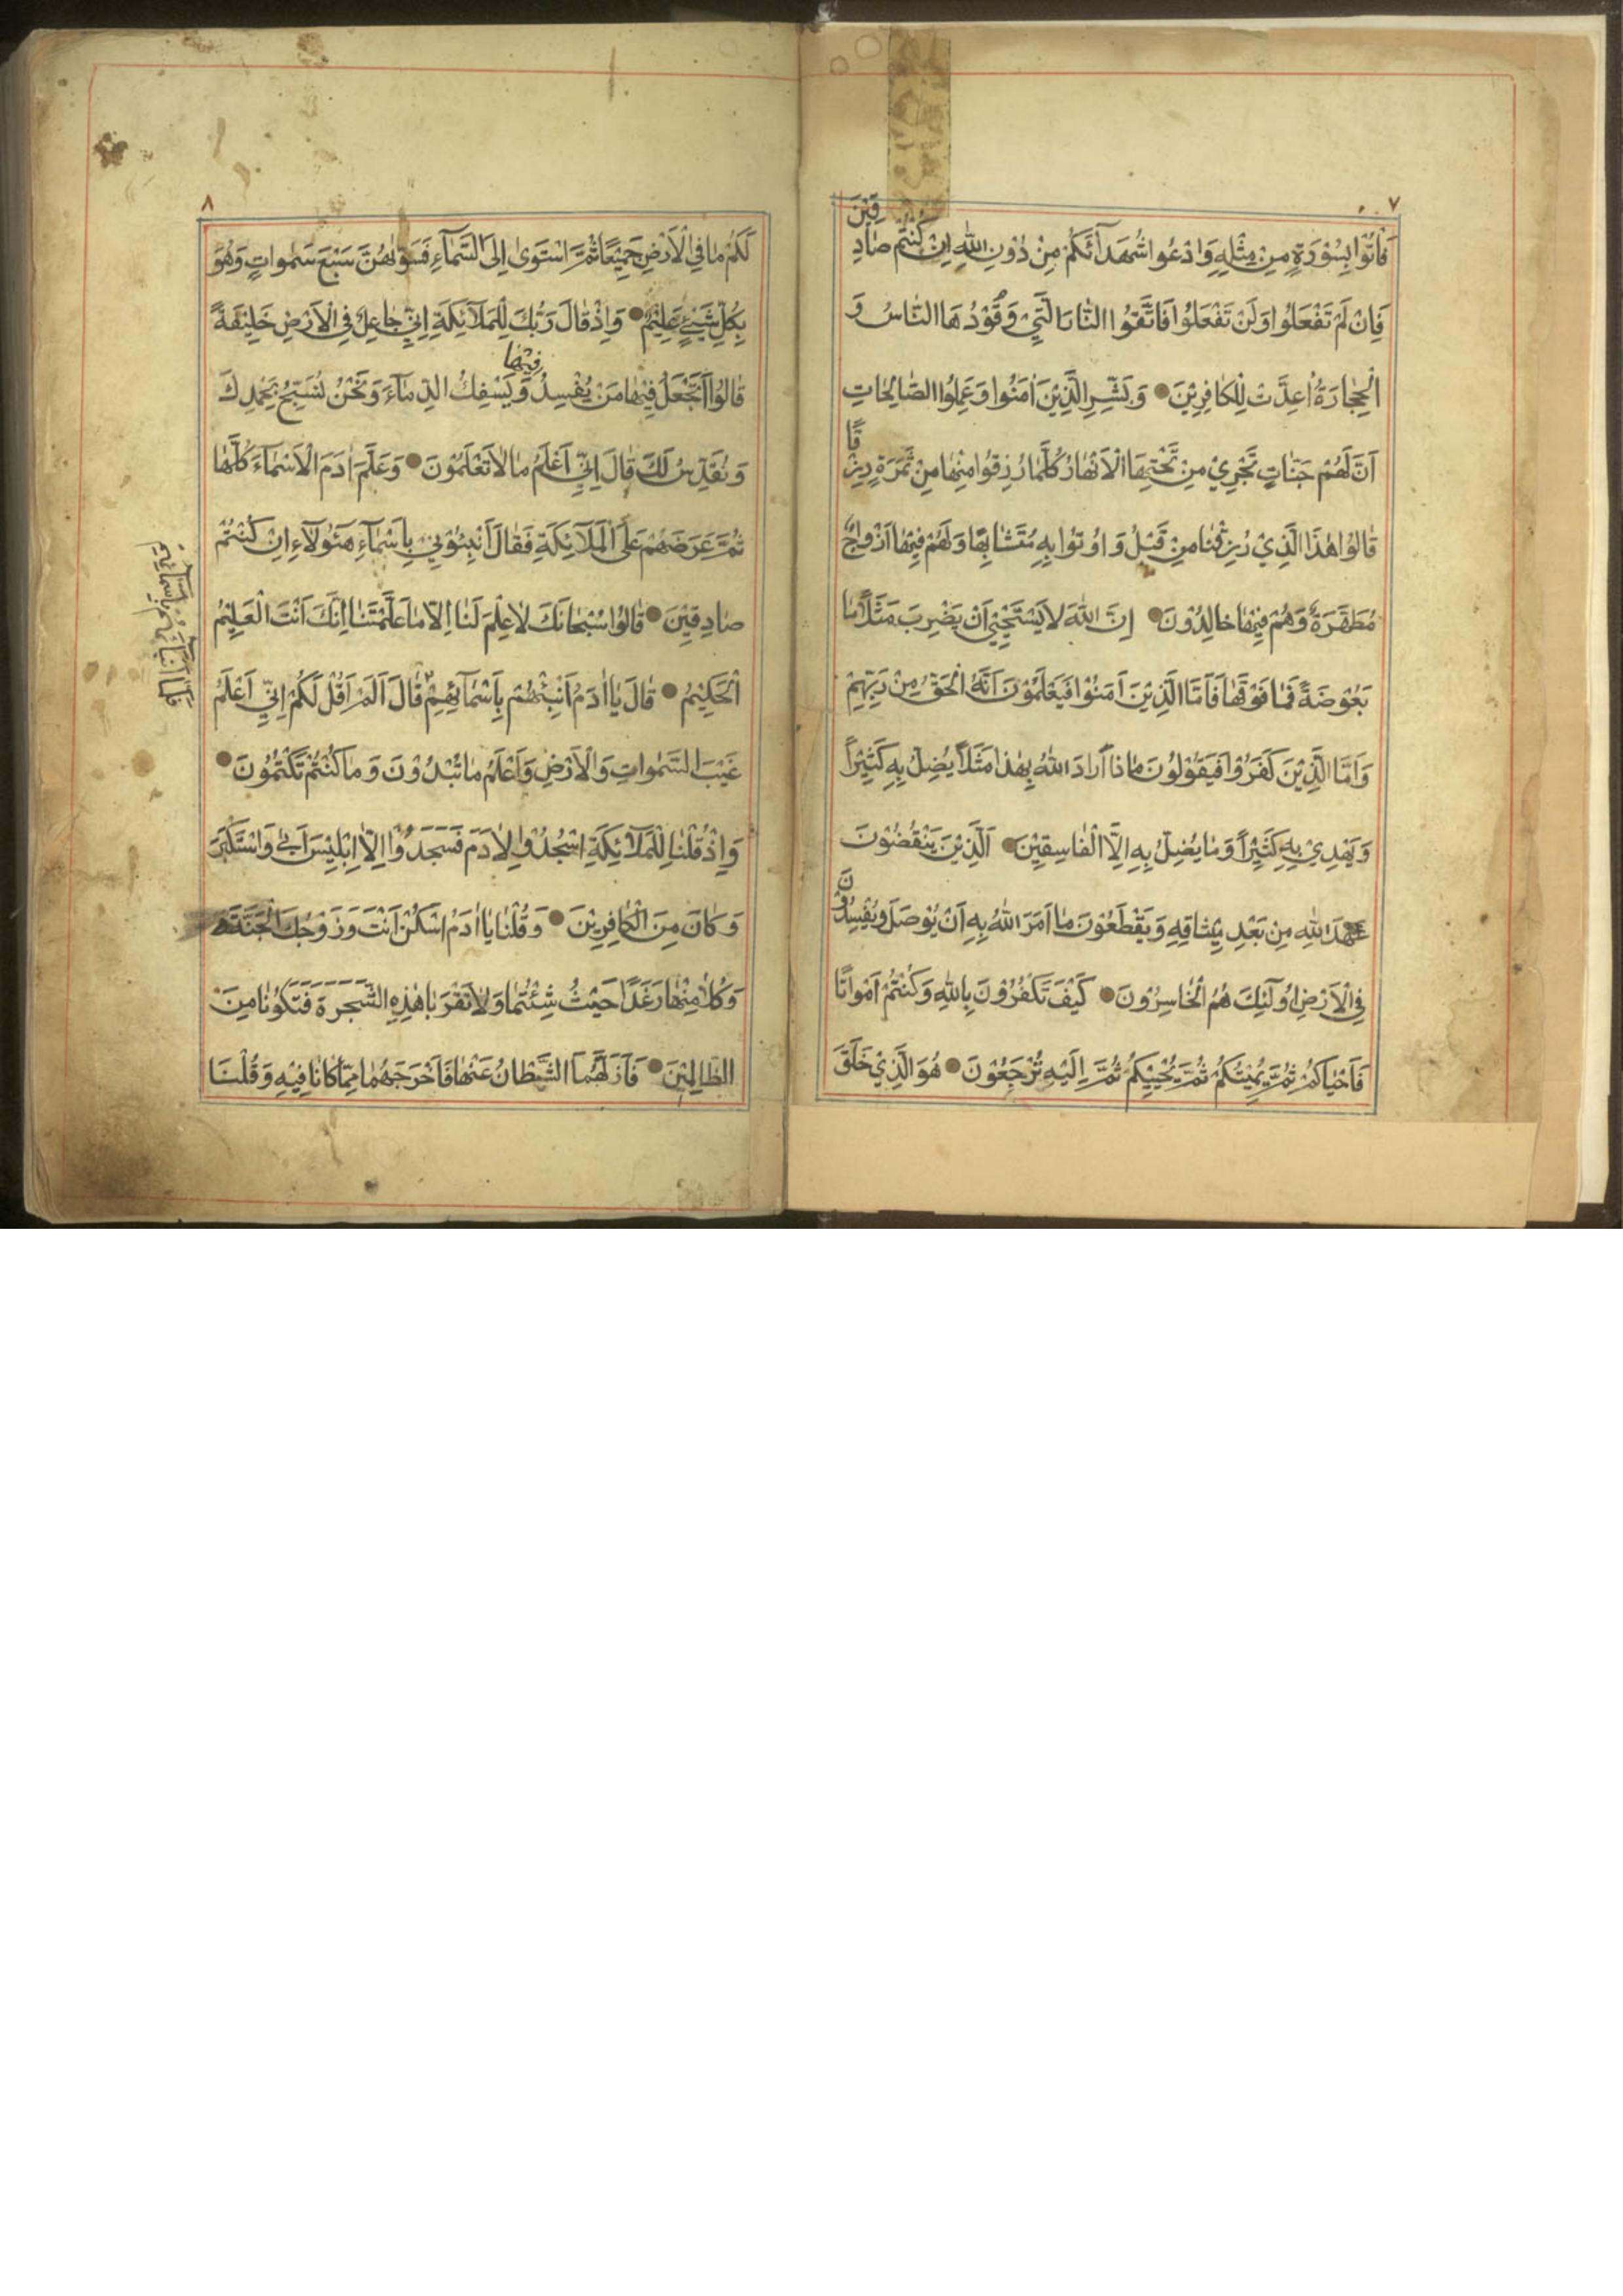 ٧
فَاْتُوْا بِسُوْرَةٍ مِنْ مِثْلِهِ وَادْعُوا شُهَدَآئَكُمْ مِنْ دُوْنِ اللّٰهِ اِنْ كُنْتُمْ صَادِقِيْنَ
فَاِنْ لَمْ تَفْعَلُوا وَلَنْ تَفْعَلُوا فَاتَّقُوا النَّارَ الَّتِيْ وَقُوْدُهَا النَّاسُ وَ
الْحِجَارَةُ اُعِدَّتْ لِلْكَافِرِيْنَ ● وَبَشِّرِ الَّذِيْنَ اٰمَنُوا وَعَمِلُوا الصَّالِحَاتِ
اَنَّ لَهُمْ جَنَّاتٍ تَجْرِيْ مِنْ تَحْتِهَا الْاَنْهَارُ كُلَّمَا رُزِقُوا مِنْهَا مِنْ ثَمَرَةٍ رِزْقًا
قَالُوا هٰذَا الَّذِيْ رُزِقْنَا مِنْ قَبْلُ وَاُوتُوْا بِهِ مُتَشَابِهًا وَلَهُمْ فِيْهَا اَزْوَاجٌ
مُطَهَّرَةٌ وَهُمْ فِيْهَا خَالِدُوْنَ ● اِنَّ اللّٰهَ لَا يَسْتَحْيِيْ اَنْ يَضْرِبَ مَثَلًا مَا
بَعُوْضَةً فَمَا فَوْقَهَا فَاَمَّا الَّذِيْنَ اٰمَنُوْا فَيَعْلَمُوْنَ اَنَّهُ الْحَقُّ مِنْ رَبِّهِمْ
وَاَمَّا الَّذِيْنَ كَفَرُوْا فَيَقُوْلُوْنَ مَاذَا اَرَادَ اللّٰهُ بِهٰذَا مَثَلًا يُضِلُّ بِهِ كَثِيْرًا
وَيَهْدِيْ بِهِ كَثِيْرًا وَمَا يُضِلُّ بِهِ اِلَّا الْفَاسِقِيْنَ ● اَلَّذِيْنَ يَنْقُضُوْنَ
عَهْدَ اللّٰهِ مِنْ بَعْدِ مِيْثَاقِهِ وَيَقْطَعُوْنَ مَا اَمَرَ اللّٰهُ بِهِ اَنْ يُوْصَلَ وَيُفْسِدُوْنَ
فِي الْاَرْضِ اُولٰٓئِكَ هُمُ الْخَاسِرُوْنَ ● كَيْفَ تَكْفُرُوْنَ بِاللّٰهِ وَكُنْتُمْ اَمْوَاتًا
فَاَحْيَاكُمْ ثُمَّ يُمِيْتُكُمْ ثُمَّ يُحْيِيْكُمْ ثُمَّ اِلَيْهِ تُرْجَعُوْنَ ● هُوَ الَّذِيْ خَلَقَ
٨
لَكُمْ مَا فِي الْاَرْضِ جَمِيْعًا ثُمَّ اسْتَوٰى اِلَى السَّمَآءِ فَسَوّٰيهُنَّ سَبْعَ سَمٰوَاتٍ وَهُوَ
بِكُلِّ شَيْءٍ عَلِيْمٌ ● وَاِذْ قَالَ رَبُّكَ لِلْمَلَآئِكَةِ اِنِّيْ جَاعِلٌ فِي الْاَرْضِ خَلِيْفَةً
قَالُوا اَتَجْعَلُ فِيْهَا مَنْ يُفْسِدُ فِيْهَا وَيَسْفِكُ الدِّمَآءَ وَنَحْنُ نُسَبِّحُ بِحَمْدِكَ
وَنُقَدِّسُ لَكَ قَالَ اِنِّيْ اَعْلَمُ مَا لَا تَعْلَمُوْنَ ● وَعَلَّمَ اٰدَمَ الْاَسْمَآءَ كُلَّهَا
ثُمَّ عَرَضَهُمْ عَلَى الْمَلَآئِكَةِ فَقَالَ اَنْبِئُوْنِيْ بِاَسْمَآءِ هٰٓؤُلَآءِ اِنْ كُنْتُمْ
صَادِقِيْنَ ● قَالُوْا سُبْحَانَكَ لَا عِلْمَ لَنَا اِلَّا مَا عَلَّمْتَنَا اِنَّكَ اَنْتَ الْعَلِيْمُ
الْحَكِيْمُ ● قَالَ يَا اٰدَمُ اَنْبِئْهُمْ بِاَسْمَآئِهِمْ قَالَ اَلَمْ اَقُلْ لَكُمْ اِنِّيْ اَعْلَمُ
غَيْبَ السَّمٰوَاتِ وَالْاَرْضِ وَاَعْلَمُ مَا تُبْدُوْنَ وَمَا كُنْتُمْ تَكْتُمُوْنَ ●
وَاِذْ قُلْنَا لِلْمَلَآئِكَةِ اسْجُدُوْا لِاٰدَمَ فَسَجَدُوْا اِلَّا اِبْلِيْسَ اَبٰى وَاسْتَكْبَرَ
وَكَانَ مِنَ الْكَافِرِيْنَ ● وَقُلْنَا يَا اٰدَمُ اسْكُنْ اَنْتَ وَزَوْجُكَ الْجَنَّةَ
وَكُلَا مِنْهَا رَغَدًا حَيْثُ شِئْتُمَا وَلَا تَقْرَبَا هٰذِهِ الشَّجَرَةَ فَتَكُوْنَا مِنَ
الظَّالِمِيْنَ ● فَاَزَلَّهُمَا الشَّيْطَانُ عَنْهَا فَاَخْرَجَهُمَا مِمَّا كَانَا فِيْهِ وَقُلْنَا
فَلَمَّا اَنْبَأَهُمْ بِاَسْمَآئِهِمْ